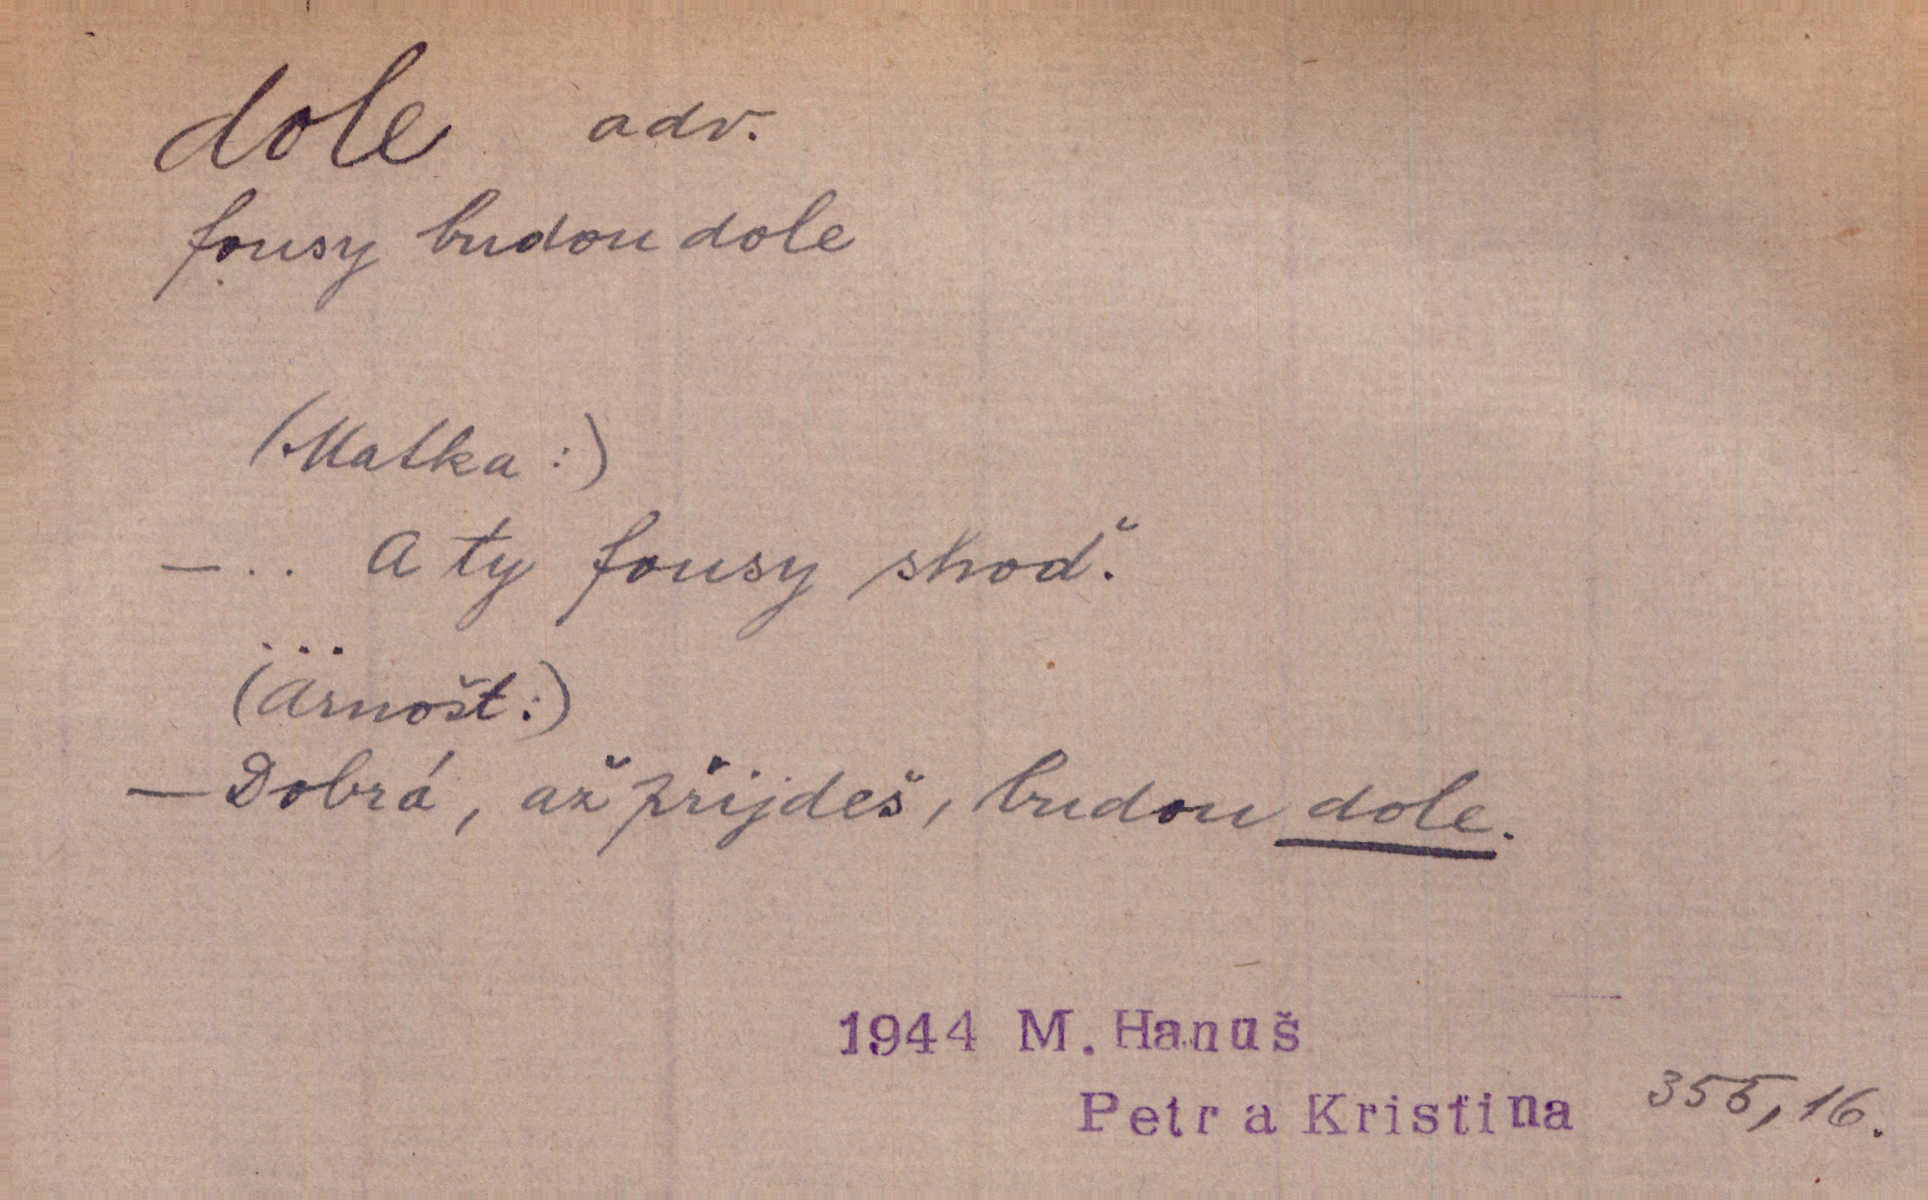 dole adv.
fousy budou dole
(Matka:)
— .. A ty fousy shoď.
...
(Arnošt:)
— Dobrá, až přijdeš, budou dole.
1944 M. Hanuš
Petr a Kristina 355, 16.